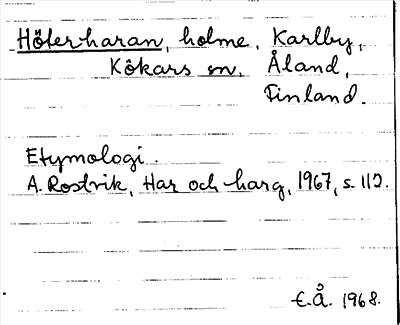 Höterharan, holme, Karlby,
Kökars sn, Åland,
Finland.
Etymologi.
A. Rostvik, Har och harg, 1967, s. 112.
E.Å. 1968.